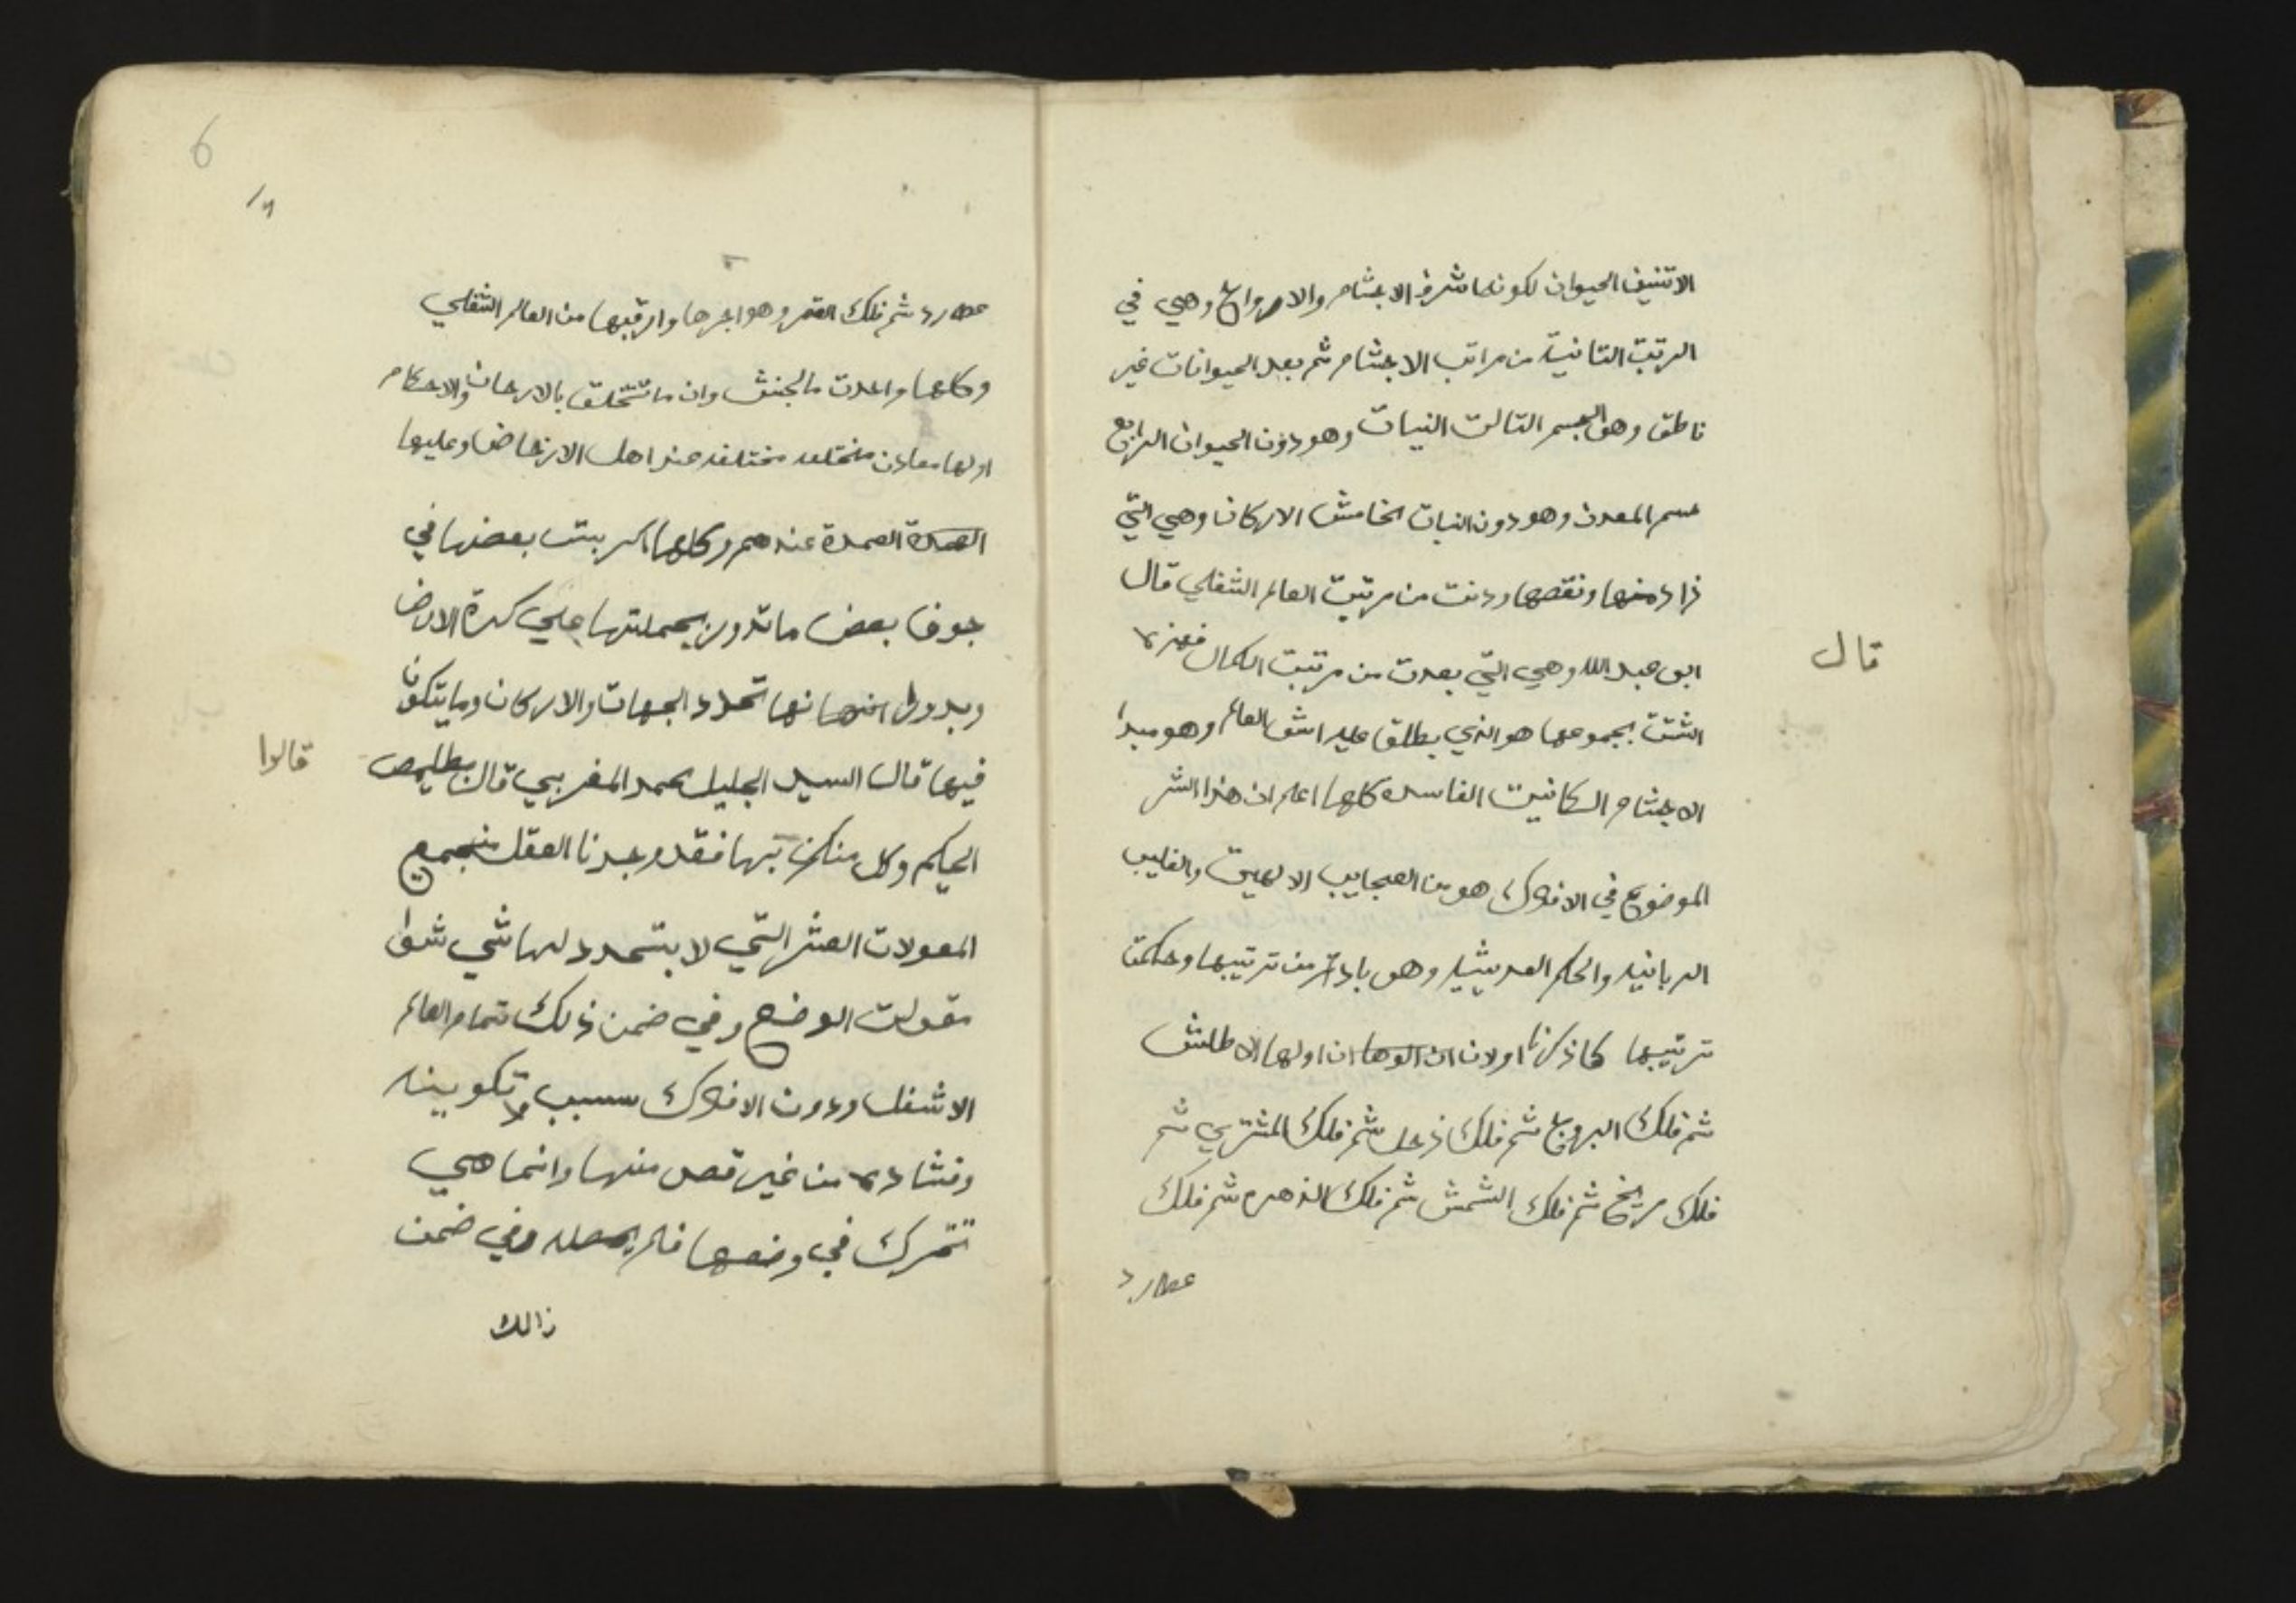 الاتنيف الحيوان لكونها شرف الاجشام والارواح وهي في
الرتبت التانية من مراتب الاجشام ثم بعد الحيوانات غير
ناطق وهو الجسم التالت النبات وهو دون الحيوان الرابع
جسم المعدن وهو دون النبات الخامش الاركان وهي التي
زاد منها ونقصها ودنت من مرتبت العالم الشفلي قال
قال
ابو عبد الله وهي التي بعدت من مرتبت الكمال فهذه
الشتت بجموعها هو الذي يطلق عليه اشم العالم وهو مبدا
الاجشام الكانيت الفاسده كلها اعلم ان هذا الشر
الموضوع في الافلاك هو من العجايب الالهيت والغليب
الربانيه والحكم الحديثيه وهو باد من ترتيبها وحكمت
ترتيبها كما ذكرنا اولا ان الوها ان اولها الاطلش
ثم فلك البروج ثم فلك زحل ثم فلك المشتري ثم
فلك مريخ ثم فلك الشمش ثم فلك الزهره ثم فلك
عطارد
6
عطارد ثم فلك القمر وهو اخرها واقربها من العالم الشفلي
وكلها واحدت مالجنش وان ما تتخلق بالارحان والاحكام
اولها معادن مختلفه مختلفه عند اهل الارتحاض وعليها
العمدة العمدة عندهم وكلها اكر بيت بعضها في
جوف بعض ما تدور بجملتها علي كرة الارض
وبدورا انها نها تحدد الجهات والاركان وما يتكون
فيها قال السيد الجليل محمد المغربي قال بطليمص
قالوا
الحكيم وكل منكن بها فقد وجدنا العقل من جميع
المعولات العشر التي لا يتحدد لها شي شوا
مقولت الوضع وفي ضمن ذلك تمام العالم
الاشفل ودون الافلاك سبب لا تكوينه
وفشاده من غير قصد منها وانما هي
تتحرك في وضعها فلم يحصله وفي ضمن
ذالك